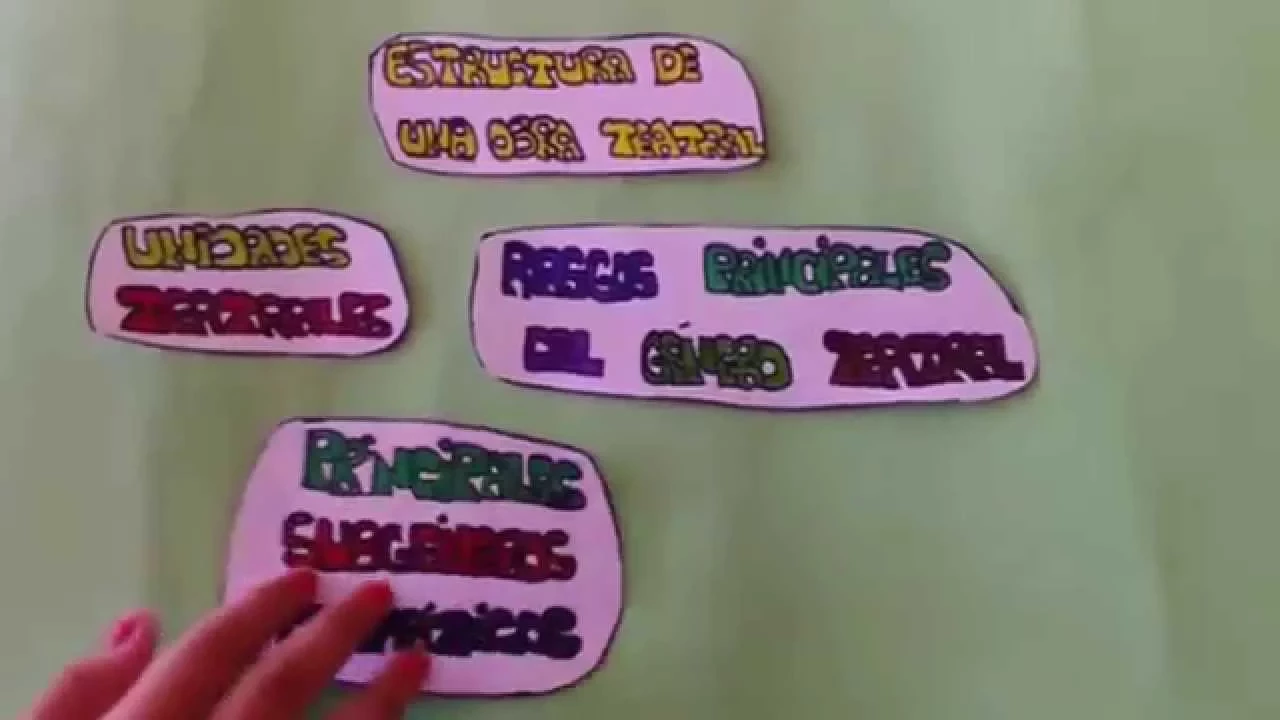 ESTRUCTURA DE
UNA OBRA TEATRAL
UNIDADES
TEATRALES
RASGOS PRINCIPALES
DEL GÉNERO TEATRAL
PRINCIPALES
SUBGÉNEROS